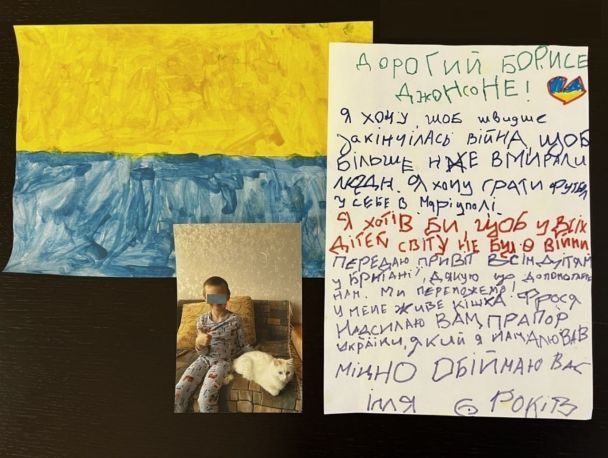 ДОРОГИЙ БОРИСЕ
ДЖОНСОНЕ!
Я ХОЧУ, ЩОБ ШВИДШЕ
ЗАКІНЧИЛАСЬ ВІЙНА, ЩОБ
БІЛЬШЕ НЕ ВМИРАЛИ
ЛЮДИ. Я ХОЧУ ГРАТИ
У СЕБЕ В МАРІУПОЛІ.
Я ХОТІВ БИ, ЩОБ У ВСІХ
ДІТЕЙ СВІТУ НЕ БУЛО ВІЙНИ
ПЕРЕДАЮ ПРИВІТ ВСІМ ДІТЯМ
У БРИТАНІЇ, ДЯКУЮ ЩО
НАМ. МИ ПЕРЕМОЖЕМО!
У МЕНЕ ЖИВЕ КІШКА ФРОСЯ
НАДСИЛАЮ ВАМ ПРАПОР
УКРАЇНИ, ЯКИЙ Я НАМАЛЮВАВ
МІЦНО ОБІЙМАЮ ВАС
ІЛЛЯ 6 РОКІВ